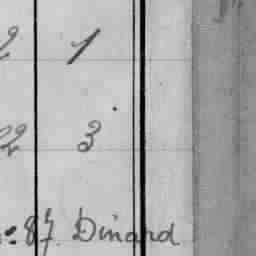 2 1
22 3
87 Dinard